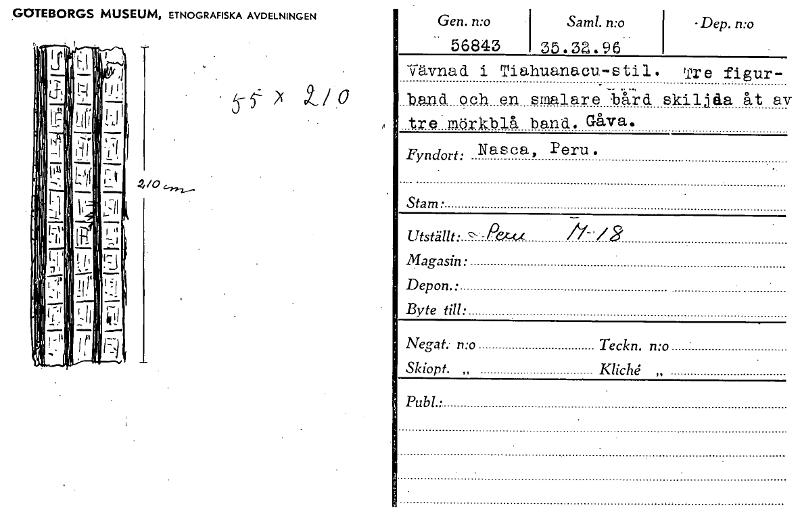 GÖTEBORGS MUSEUM, ETNOGRAFISKA AVDELNINGEN
55 x 210
210 cm
Gen. n:o Saml. n:o Dep. n:o
56843 35.32.96
Vävnad i Tiahuanacu-stil. Tre figur-
band och en smalare bård skiljda åt av
tre mörkblå band. Gåva.
Fyndort: Nasca, Peru.
Stam:
Utställt: Peru M-18
Magasin:
Depon.:
Byte till:
Negat. n:o Teckn. n:o
Skiopt. „ Kliché „
Publ.: